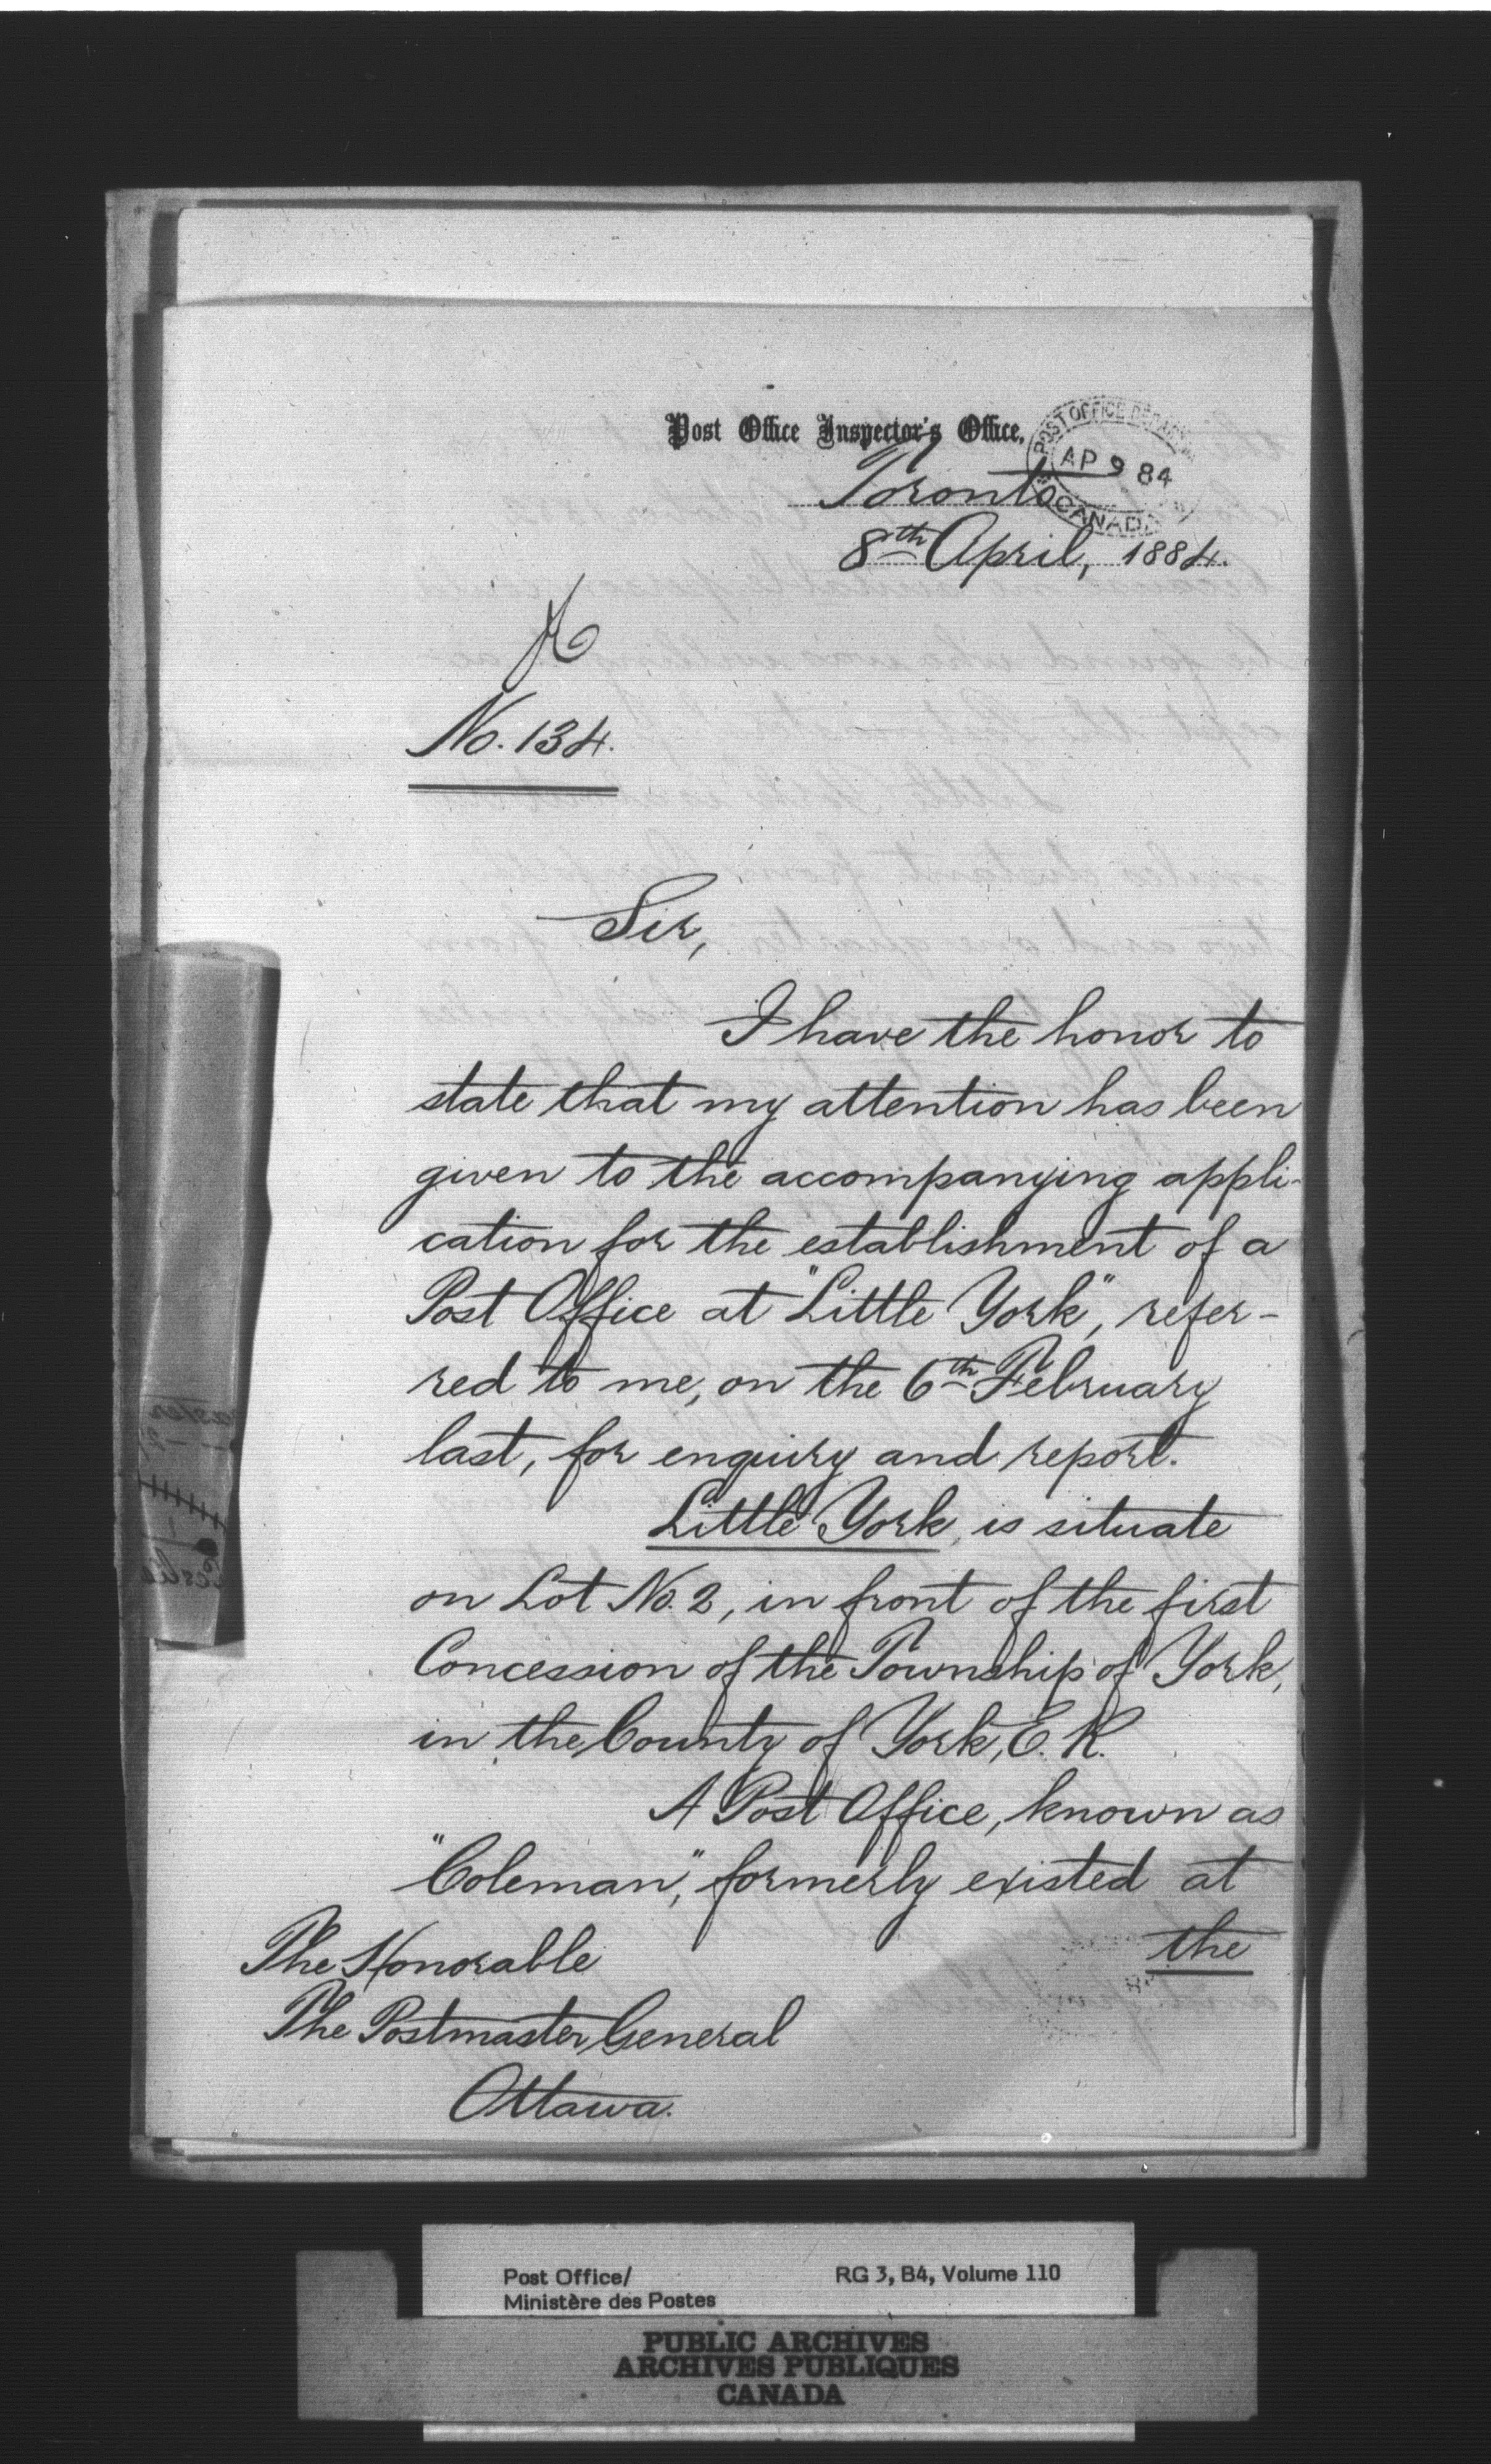 Post Office Inspector's Office,
POST OFFICE
AP 9 84
CANADA
Toronto
8th April, 1884.
No. 134.
Sir,
I have the honor to
state that my attention has been
given to the accompanying appli-
cation for the establishment of a
Post Office at "Little York", refer-
red to me, on the 6th February
last, for enquiry and report.
Little York, is situate
on Lot No. 2, in front of the first
Concession of the Township of York,
in the County of York, E. R.
A Post Office, known as
"Coleman", formerly existed at
the
The Honorable
The Postmaster General
Ottawa.
Post Office/
Ministère des Postes
RG 3, B4, Volume 110
PUBLIC ARCHIVES
ARCHIVES PUBLIQUES
CANADA